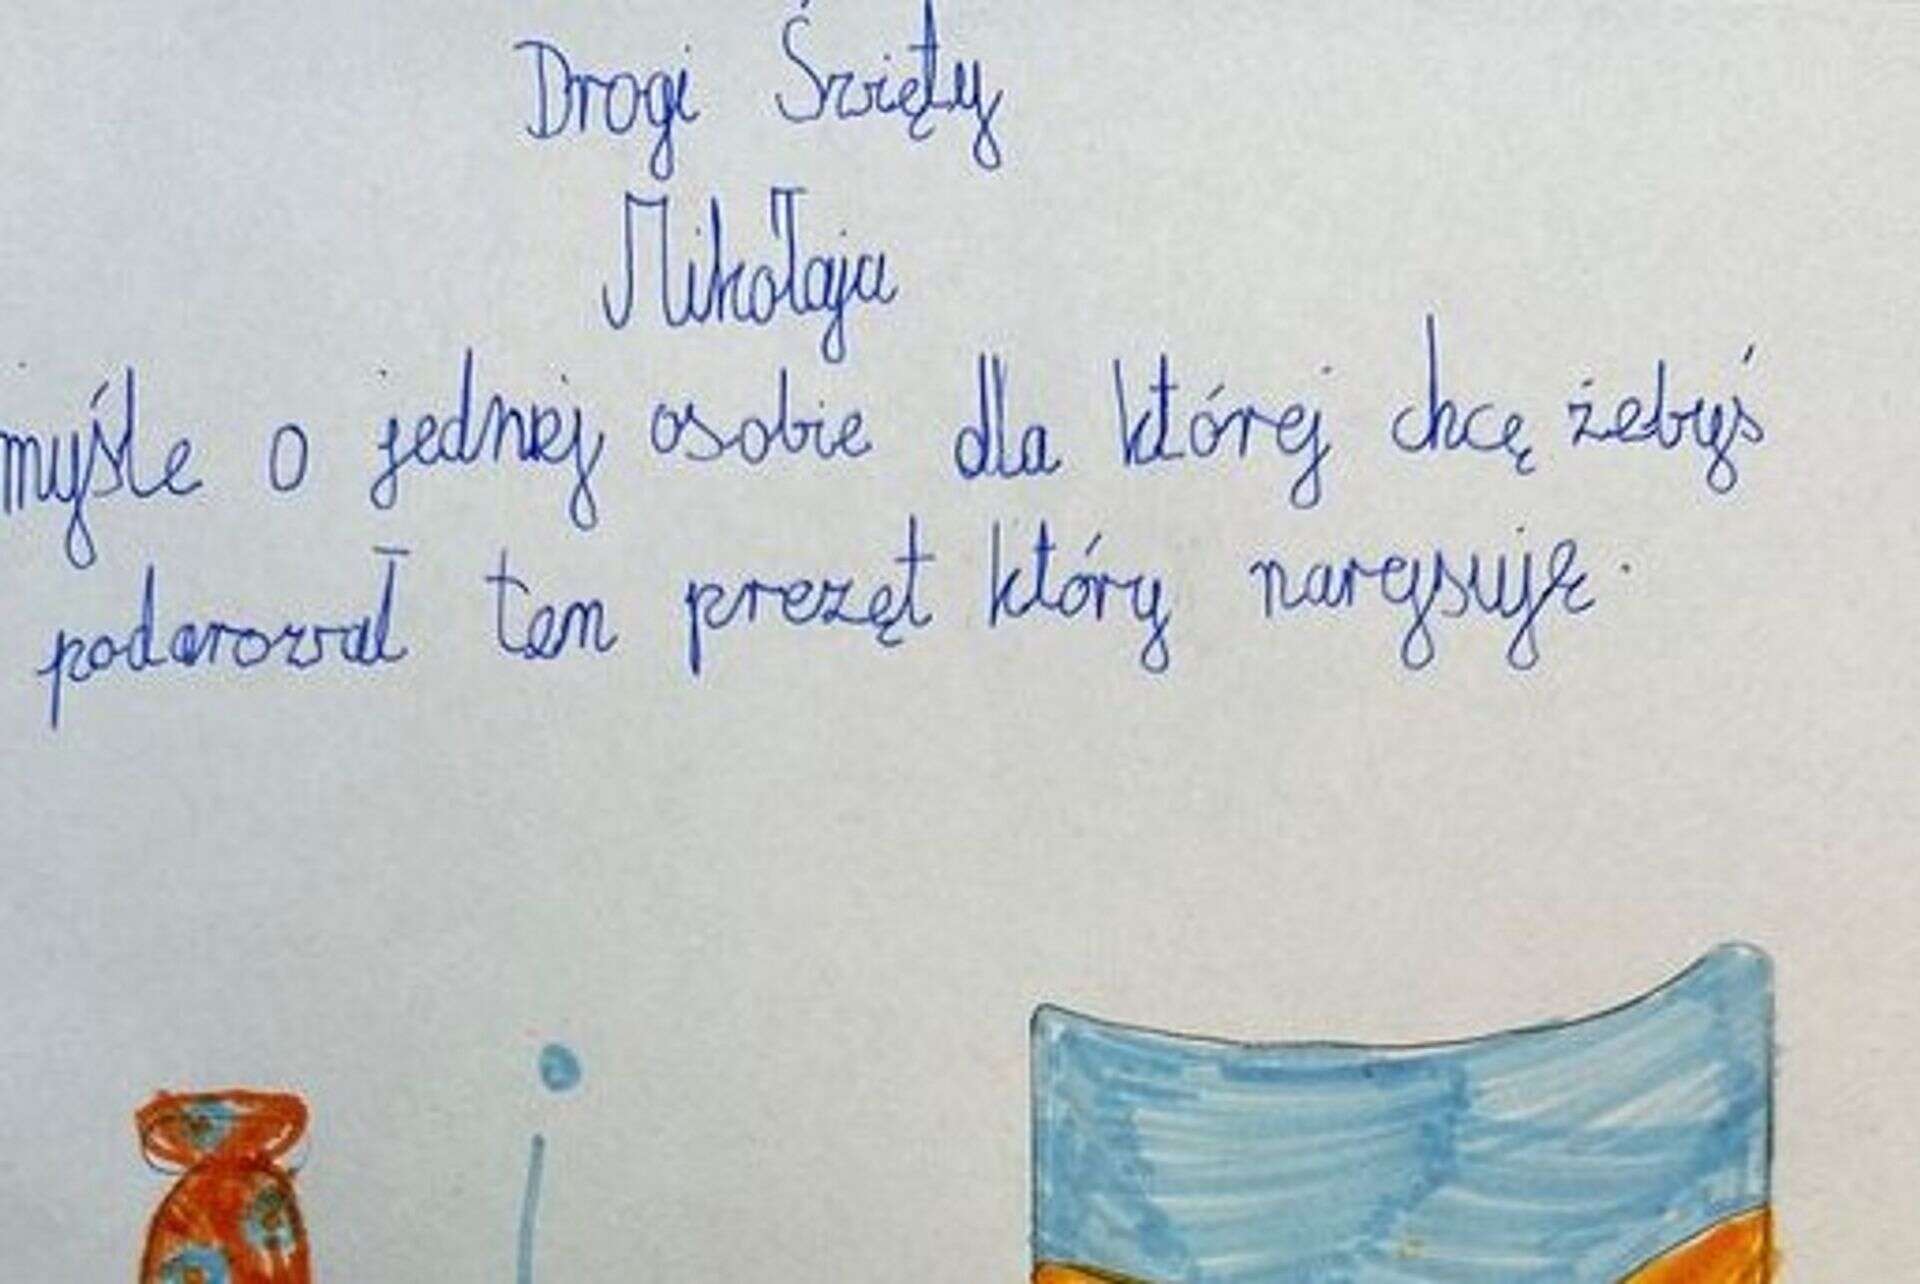 Drogi Święty
Mikołaju
myśle o jednej osobie dla której chcę żebyś
podarował ten prezęt który narysuję.